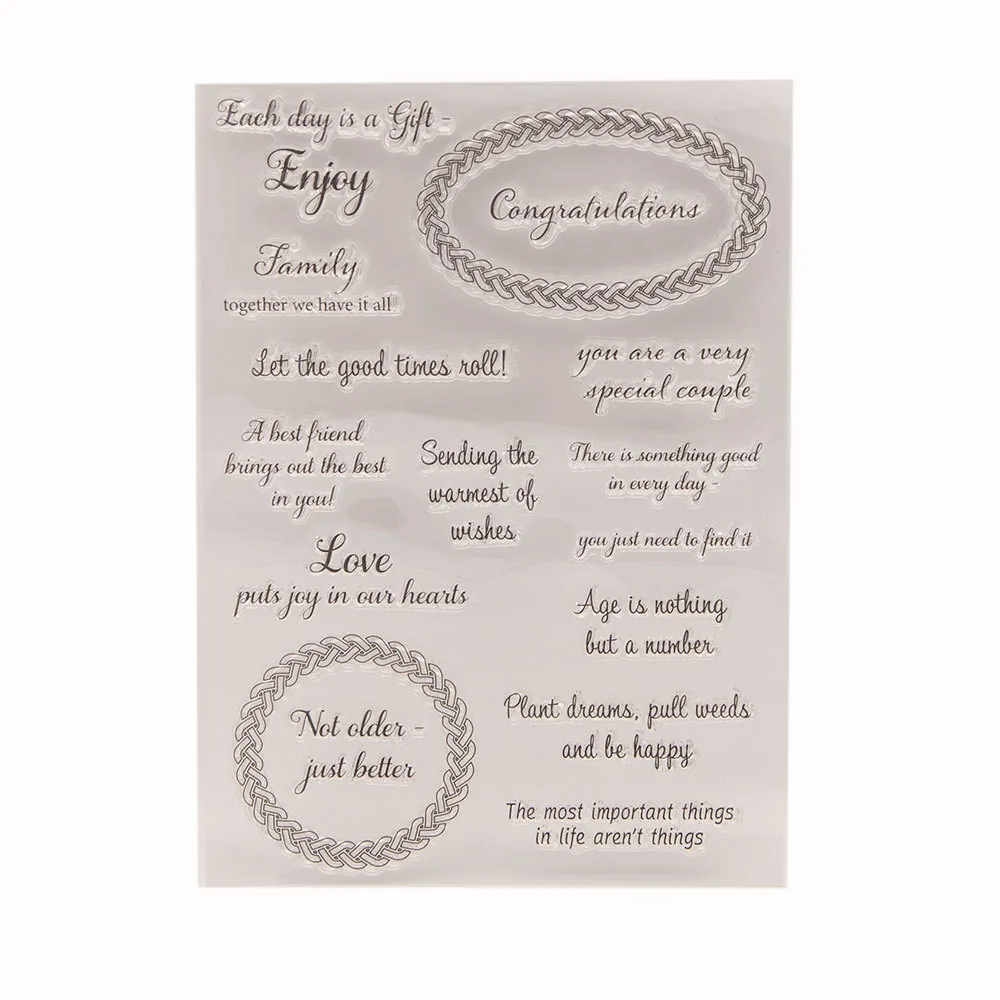 Each day is a Gift -
Enjoy
Congratulations
Family
together we have it all
Let the good times roll!
you are a very
special couple
A best friend
brings out the best
in you!
Sending the
warmest of
wishes
There is something good
in every day -
you just need to find it
Love
puts joy in our hearts
Age is nothing
but a number
Not older -
just better
Plant dreams, pull weeds
and be happy
The most important things
in life aren't things